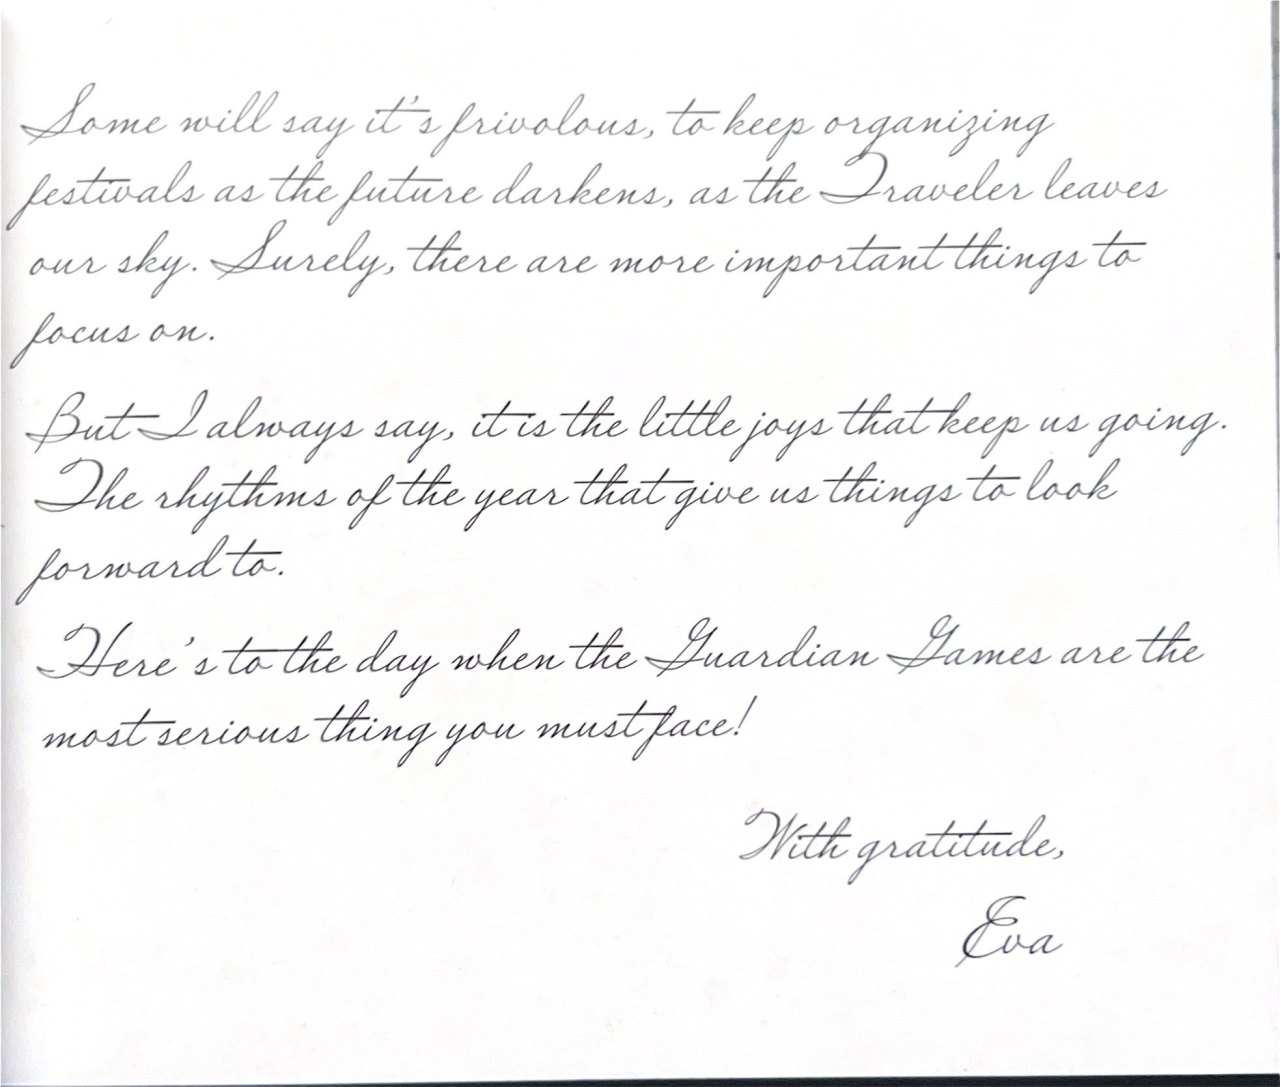 Some will say it's frivolous, to keep organizing
festivals as the future darkens, as the Traveler leaves
our sky. Surely, there are more important things to
focus on.
But I always say, it is the little joys that keep us going.
The rhythms of the year that give us things to look
forward to.
Here's to the day when the Guardian Games are the
most serious thing you must face!
With gratitude,
Eva